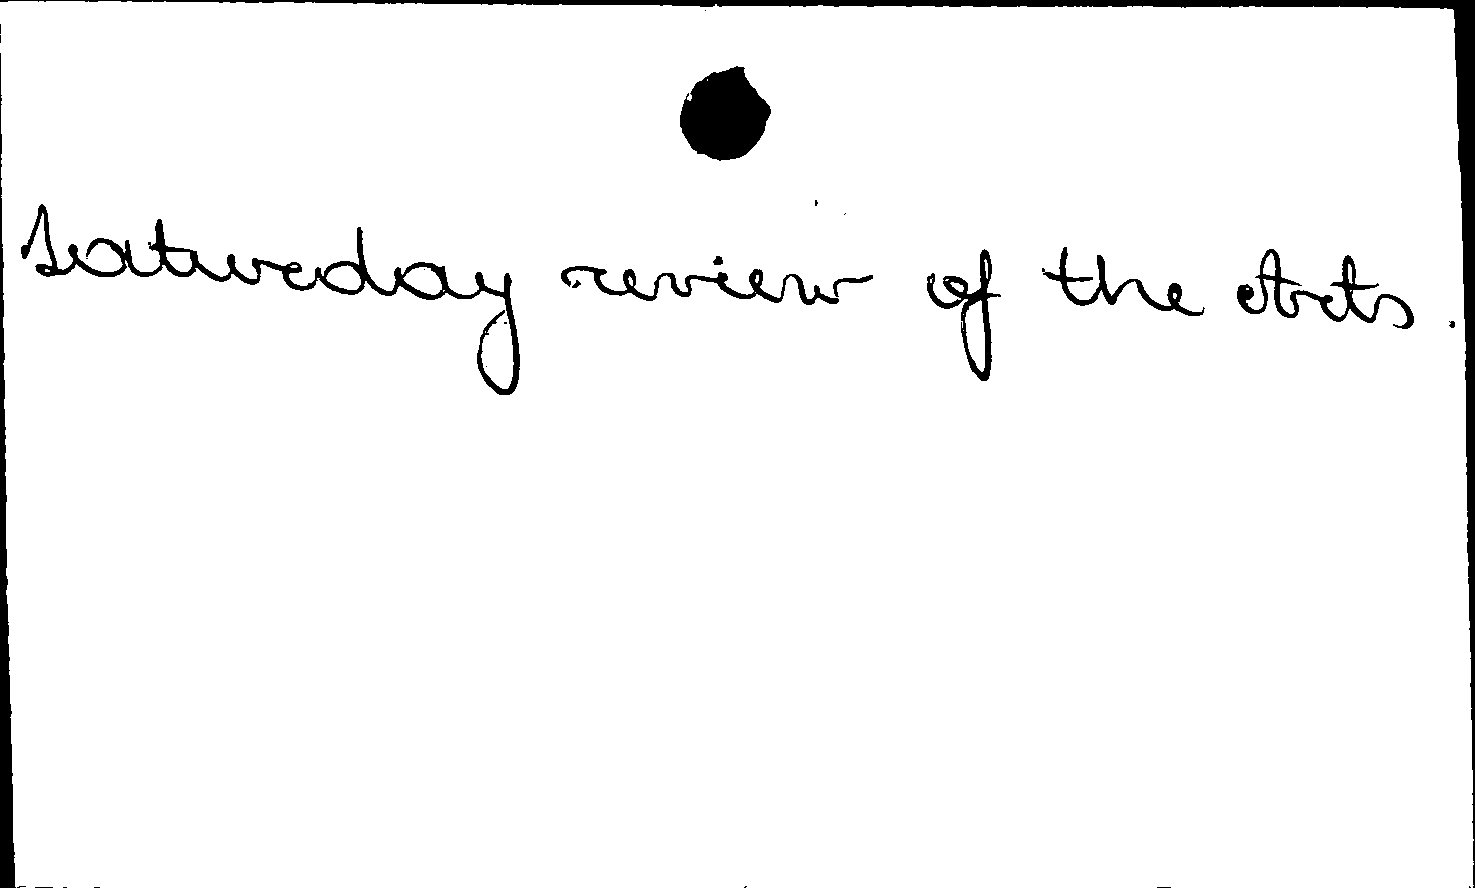 Saturday review of the Arts.